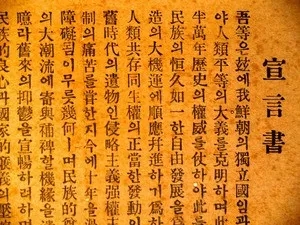 宣言書
吾等은玆에我鮮朝의獨立國임과
야人類平等의大義를克明하며此
半萬年歷史의權威를仗하야此를
民族의恒久如一한自由發展을爲
造의大機運에順應幷進하기爲하
人類共存同生權의正當한發動이
舊時代의遺物인侵略主義强權
制의痛苦를嘗한지今에十年을過
障礙됨이무릇幾何ㅣ며民族的尊
의大潮流에寄與補裨할機緣을遺
臆라舊來의抑鬱을宣暢하려하며
民族的良心과國家的廉義의壓